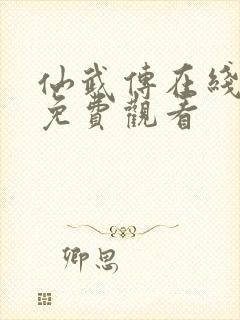 仙武傳在綫
免費觀看
卿思